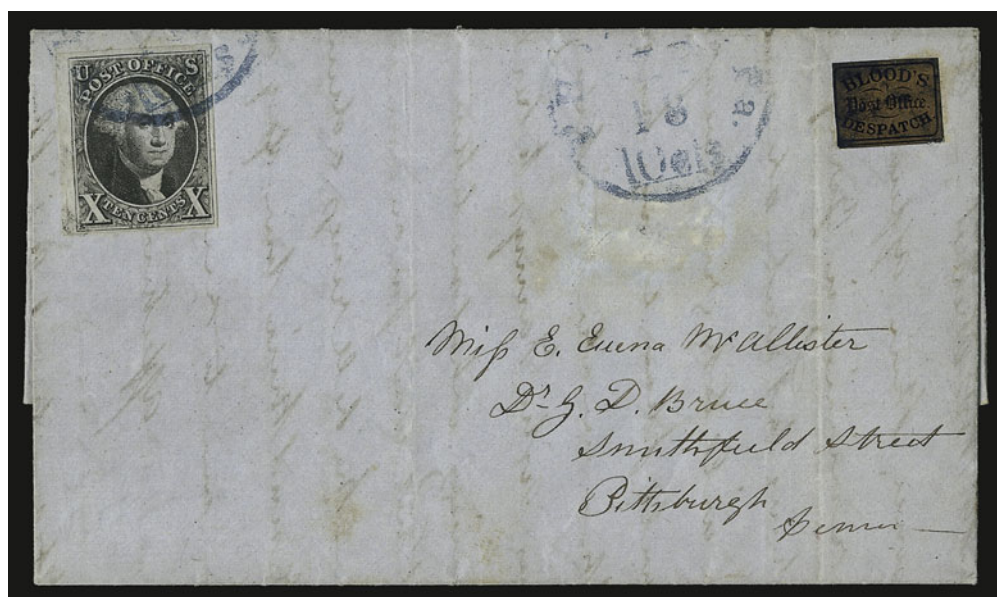 U S
POST OFFICE
X TEN CENTS X
Pa.
18
10cts
BLOOD'S
Post Office
DESPATCH
Miss E. Emma McAllister
Dr G. D. Bruce
Smithfield Street
Pittsburgh
Penna